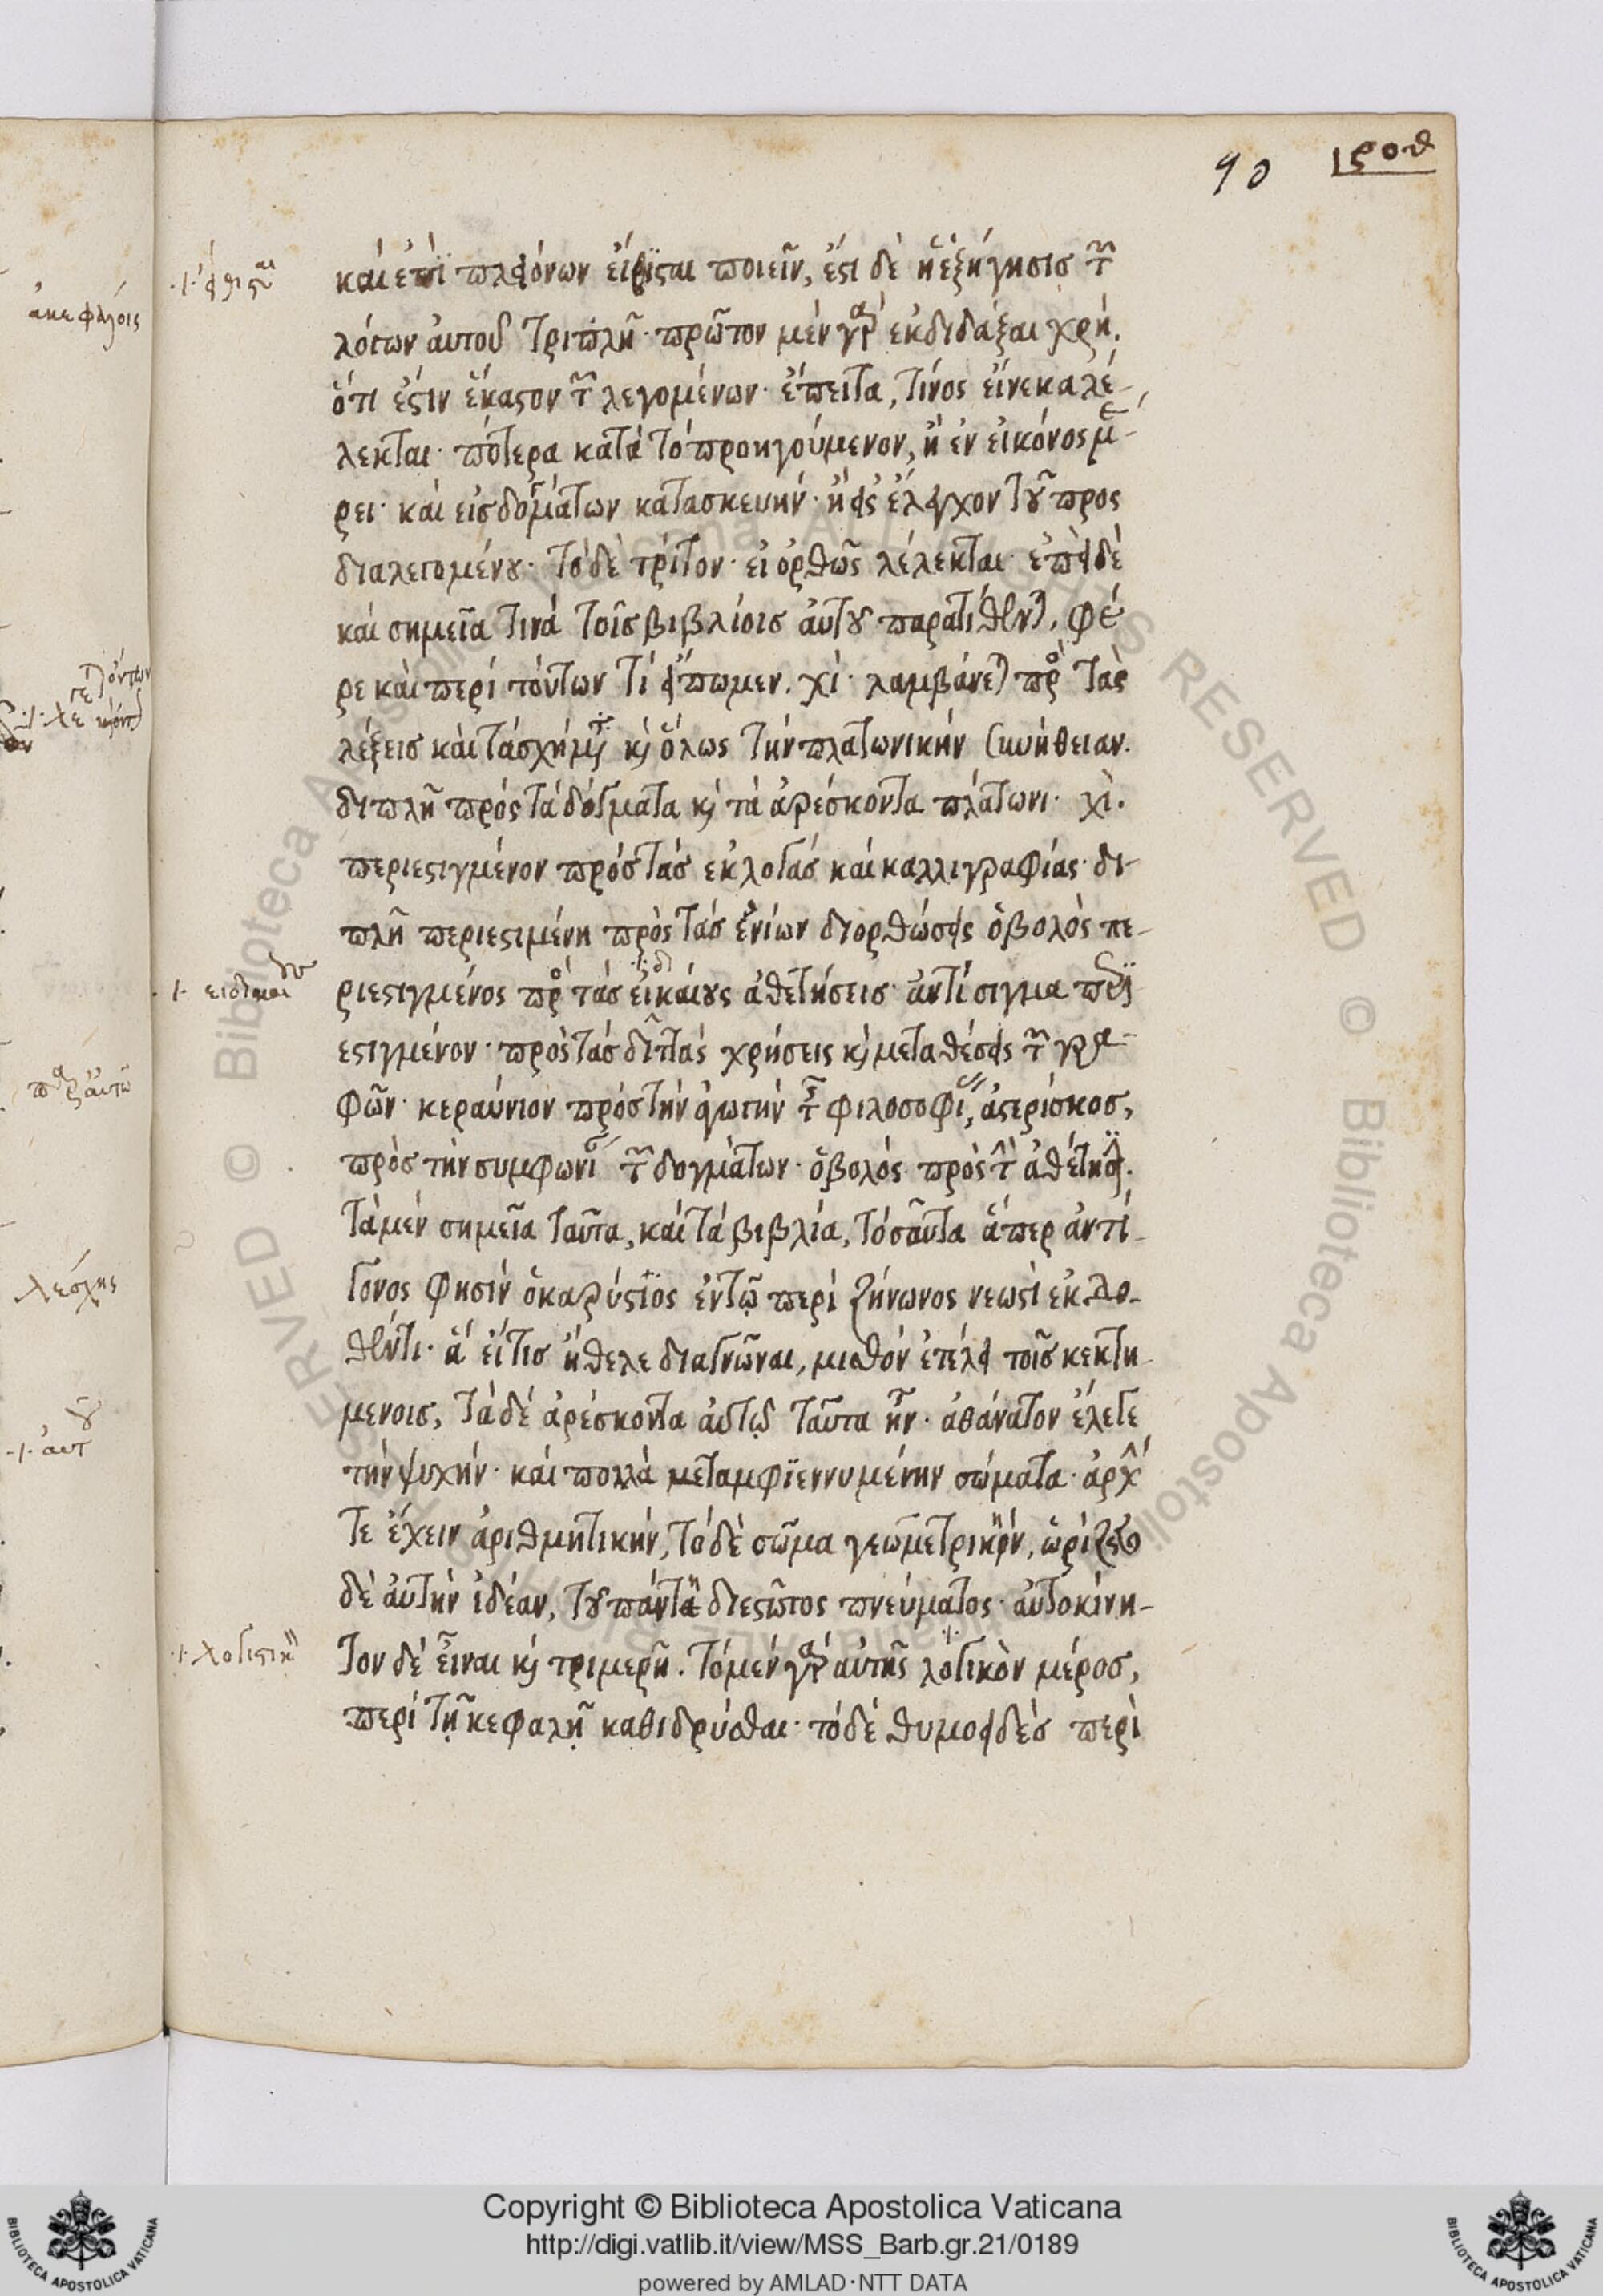 90 ροθ
καὶ ἐπὶ πλειόνων εἴρισται ποιεῖν, ἔστι δὲ ἡ ἐξήγησις τῶν
λόγων αὐτοῦ τριπλῆ· πρῶτον μὲν γὰρ ἐκδιδάξαι χρή.
ὅτι ἐστὶν ἕκαστον τῶν λεγομένων· ἔπειτα, τίνος εἵνεκα λέ-
λεκται· πότερα κατὰ τὸ προηγούμενον, ἢ ἐν εἰκόνος μέ-
ρει· καὶ εἰς δογμάτων κατασκευήν· ἢ εἰς ἔλεγχον τοῦ προς
διαλεγομένου· τὸ δὲ τρίτον· εἰ ὀρθῶς λέλεκται· ἐπεὶ δὲ
καὶ σημεῖα τινὰ τοῖς βιβλίοις αὐτοῦ παρατίθενται, φέ
ρε καὶ περὶ τούτων τί εἴπωμεν. χῖ· λαμβάνεται πρὸς τὰς
λέξεις καὶ τὰ σχήματα καὶ ὅλως τὴν πλατωνικὴν συνήθειαν.
διπλῆ πρὸς τὰ δόγματα καὶ τὰ ἀρέσκοντα πλάτωνι· χῖ.
περιεστιγμένον πρὸς τὰς ἐκλογὰς καὶ καλλιγραφίας· δι-
πλῆ περιεστιμένη πρὸς τὰς ἐνίων διορθώσεις ὀβολὸς πε-
ριεστιγμένος πρὸς τὰς εἰκαίους ἀθετήσεις· ἀντίσιγμα περι
εστιγμένον· πρὸς τὰς διττὰς χρήσεις καὶ μεταθέσεις τῶν γρα-
φῶν· κεραύνιον πρὸς τὴν ἀγωγὴν τῆς φιλοσοφίας, ἀστερίσκος,
πρὸς τὴν συμφωνίαν τῶν δογμάτων· ὀβολὸς πρὸς τὴν ἀθέτησιν.
τὰ μὲν σημεῖα ταῦτα, καὶ τὰ βιβλία, τοσαῦτα ἅπερ ἀντί-
γονος φησὶν ὁ καρύστιος ἐν τῷ περὶ ζήνωνος νεωστὶ ἐκδο-
θέντι· ἃ εἴ τις ἤθελε διαγνῶναι, μισθὸν ἐτέλει τοῖς κεκτη-
μενοις, τὰ δὲ ἀρέσκοντα αὐτῷ ταῦτα ἦν· ἀθάνατον ἔλεγε
τὴν ψυχήν· καὶ πολλὰ μεταμφϊεννυμένην σώματα· ἀρχήν
τε ἔχειν ἀριθμητικήν, τὸ δὲ σῶμα γεωμετρικήν, ὡρίζετο
δὲ αὐτὴν ἰδέαν, τοῦ πάντη διεστῶτος πνεύματος· αὐτοκίνη-
τον δὲ εἶναι καὶ τριμερῆ. τὸ μὲν γὰρ αὐτῆς λογικὸν μέρος,
περὶ τῇ κεφαλῇ καθιδρύσθαι· τὸ δὲ θυμοειδὲς περὶ
ἀκεφάλοις
λέσχης
λογιστικ
Copyright © Biblioteca Apostolica Vaticana
http://digi.vatlib.it/view/MSS_Barb.gr.21/0189
powered by AMLAD·NTT DATA
BIBLIOTECA APOSTOLICA VATICANA
BIBLIOTECA APOSTOLICA VATICANA